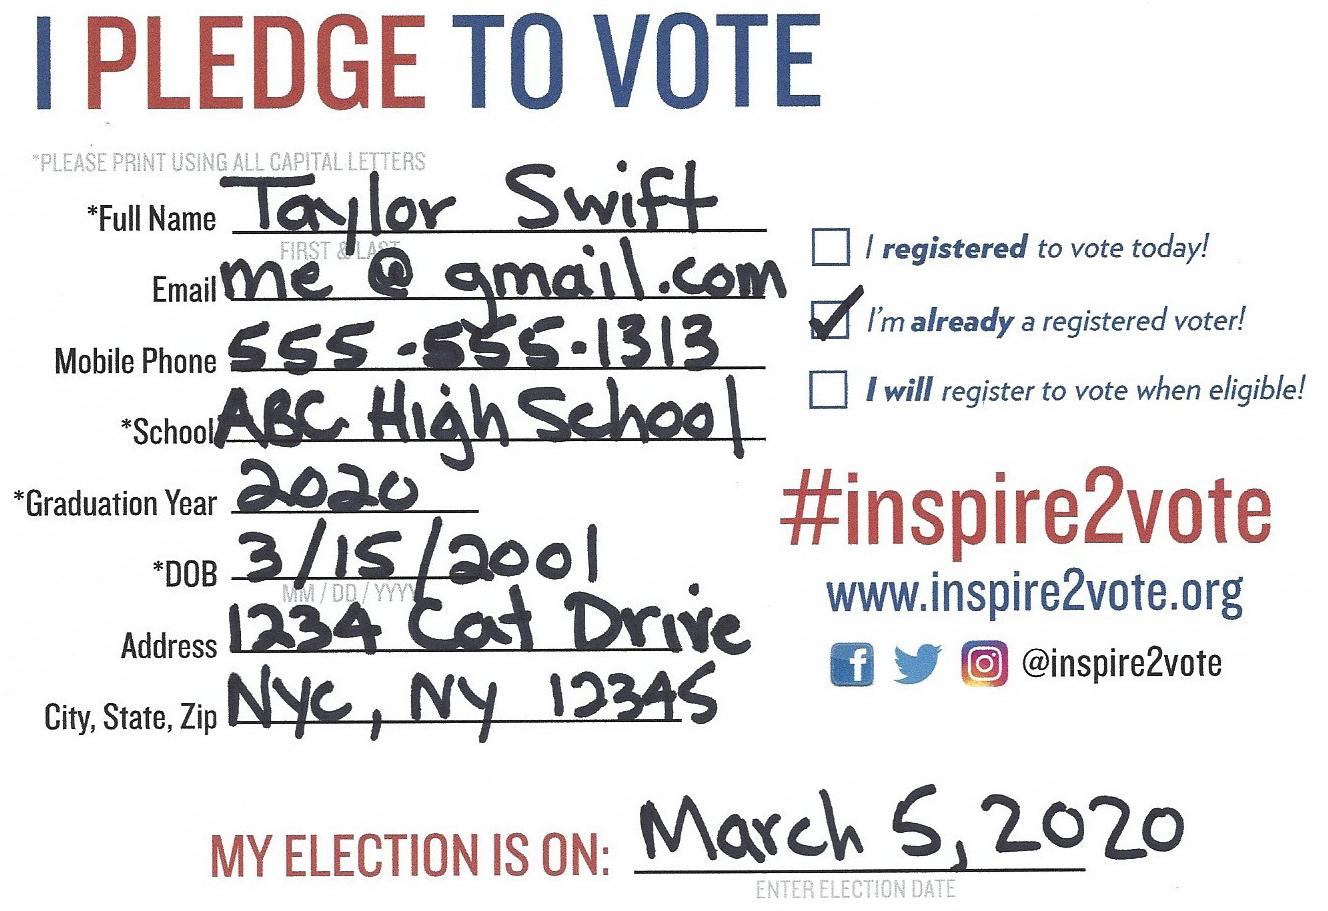 I PLEDGE TO VOTE
*PLEASE PRINT USING ALL CAPITAL LETTERS
*Full Name Taylor Swift
FIRST & LAST
Email me @ gmail.com
Mobile Phone 555-555-1313
*School ABC High School
*Graduation Year 2020
*DOB 3/15/2001
MM / DD / YYYY
Address 1234 Cat Drive
City, State, Zip NYC, NY 12345
I registered to vote today!
I'm already a registered voter!
I will register to vote when eligible!
#inspire2vote
www.inspire2vote.org
@inspire2vote
MY ELECTION IS ON: March 5, 2020
ENTER ELECTION DATE